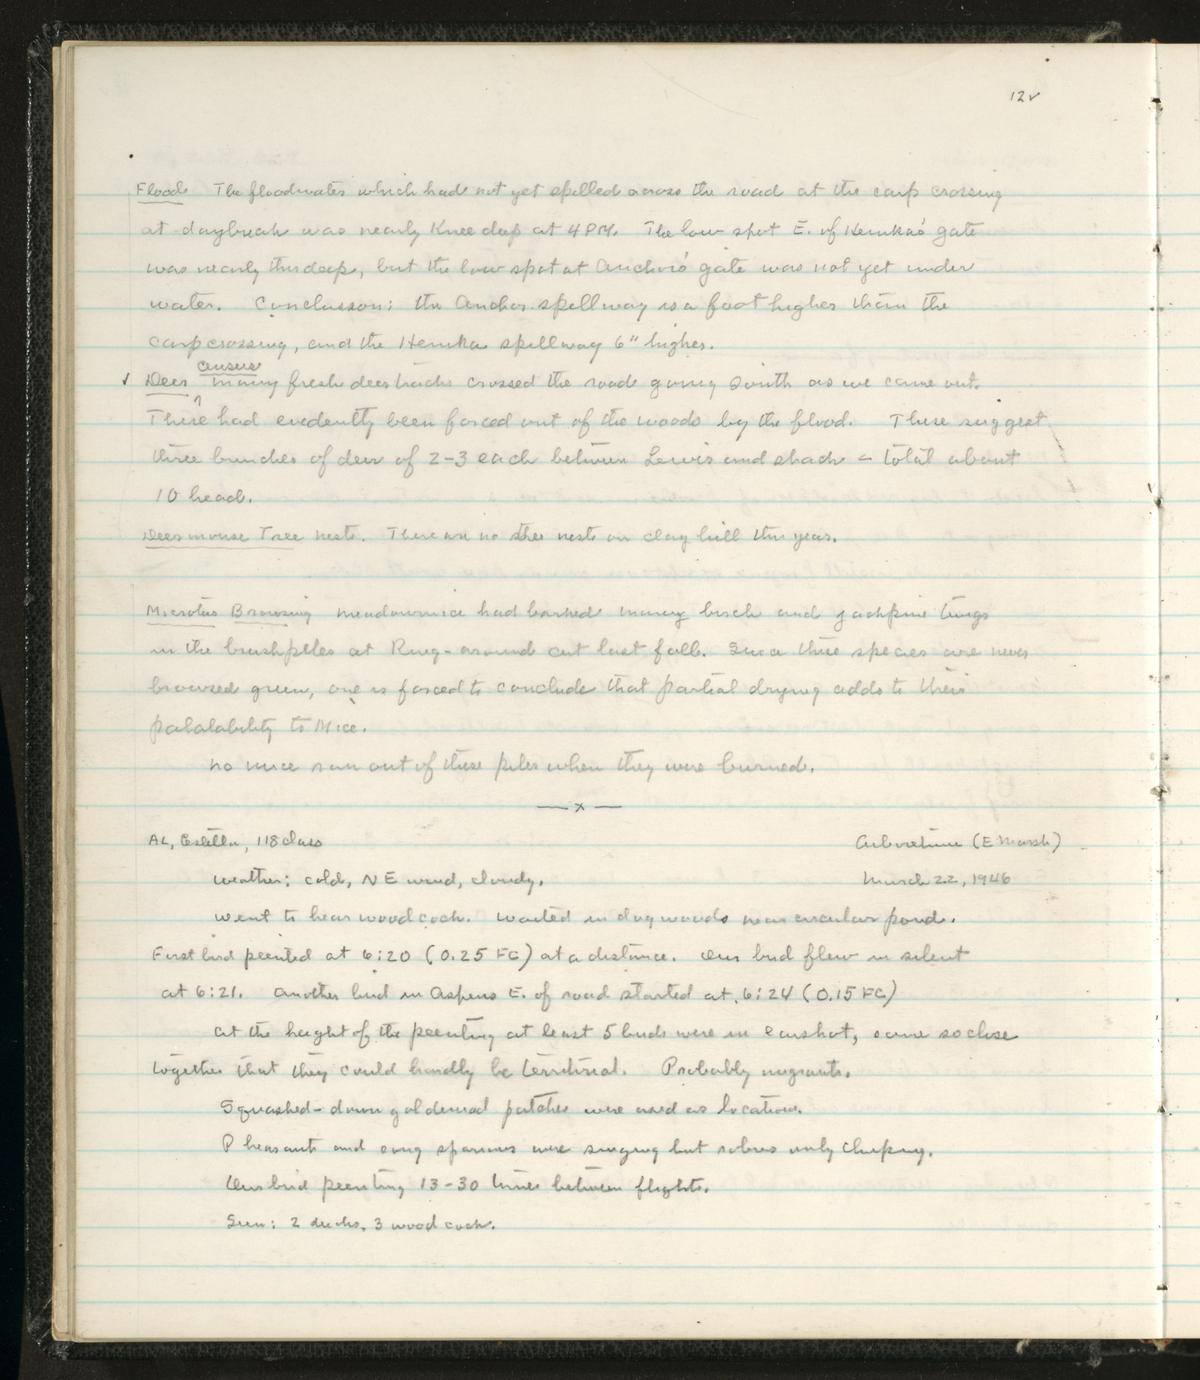 12✓
Flood The floodwater which had not yet spilled across the road at the carp crossing
at daybreak was nearly knee deep at 4 PM. The low spot E. of Hemka's gate
was nearly this deep, but the low spot at Anchor's gate was not yet under
water. Conclusson: the Anchor spillway is a foot higher than the
carp crossing, and the Hemka spillway 6" higher.
census
✓ Deer ^ Many fresh deer tracks crossed the road going South as we came out.
These had evidently been forced out of the woods by the flood. These suggest
three bunches of deer of 2-3 each between Lewis and shack - total about
10 head.
Deermouse Tree nests. There are no tree nests on clay hill this year.
Microtus Browsing Meadowmice had barked many birch and jackpine twigs
in the brushpiles at Ring-around cut last fall. Since these species are never
browsed green, one is forced to conclude that partial drying adds to their
palatability to Mice.
No mice ran out of these piles when they were burned.
— x —
AL, Estella, 118 class Arboretum (E Marsh)
Weather: cold, NE wind, cloudy. March 22, 1946
Went to hear woodcock. Waited in dogwoods near circular pond.
First bird peented at 6:20 (0.25 FC) at a distance. Our bird flew in silent
at 6:21. Another bird in Aspens E. of road started at 6:24 (0.15 FC)
At the height of the peenting at least 5 birds were in earshot, some so close
together that they could hardly be territorial. Probably migrants.
Squashed-down goldenrod patches were used as locations.
Pheasants and song sparrows were singing but robins only chirping.
Our bird peenting 13-30 times between flights.
Seen: 2 ducks, 3 woodcock.